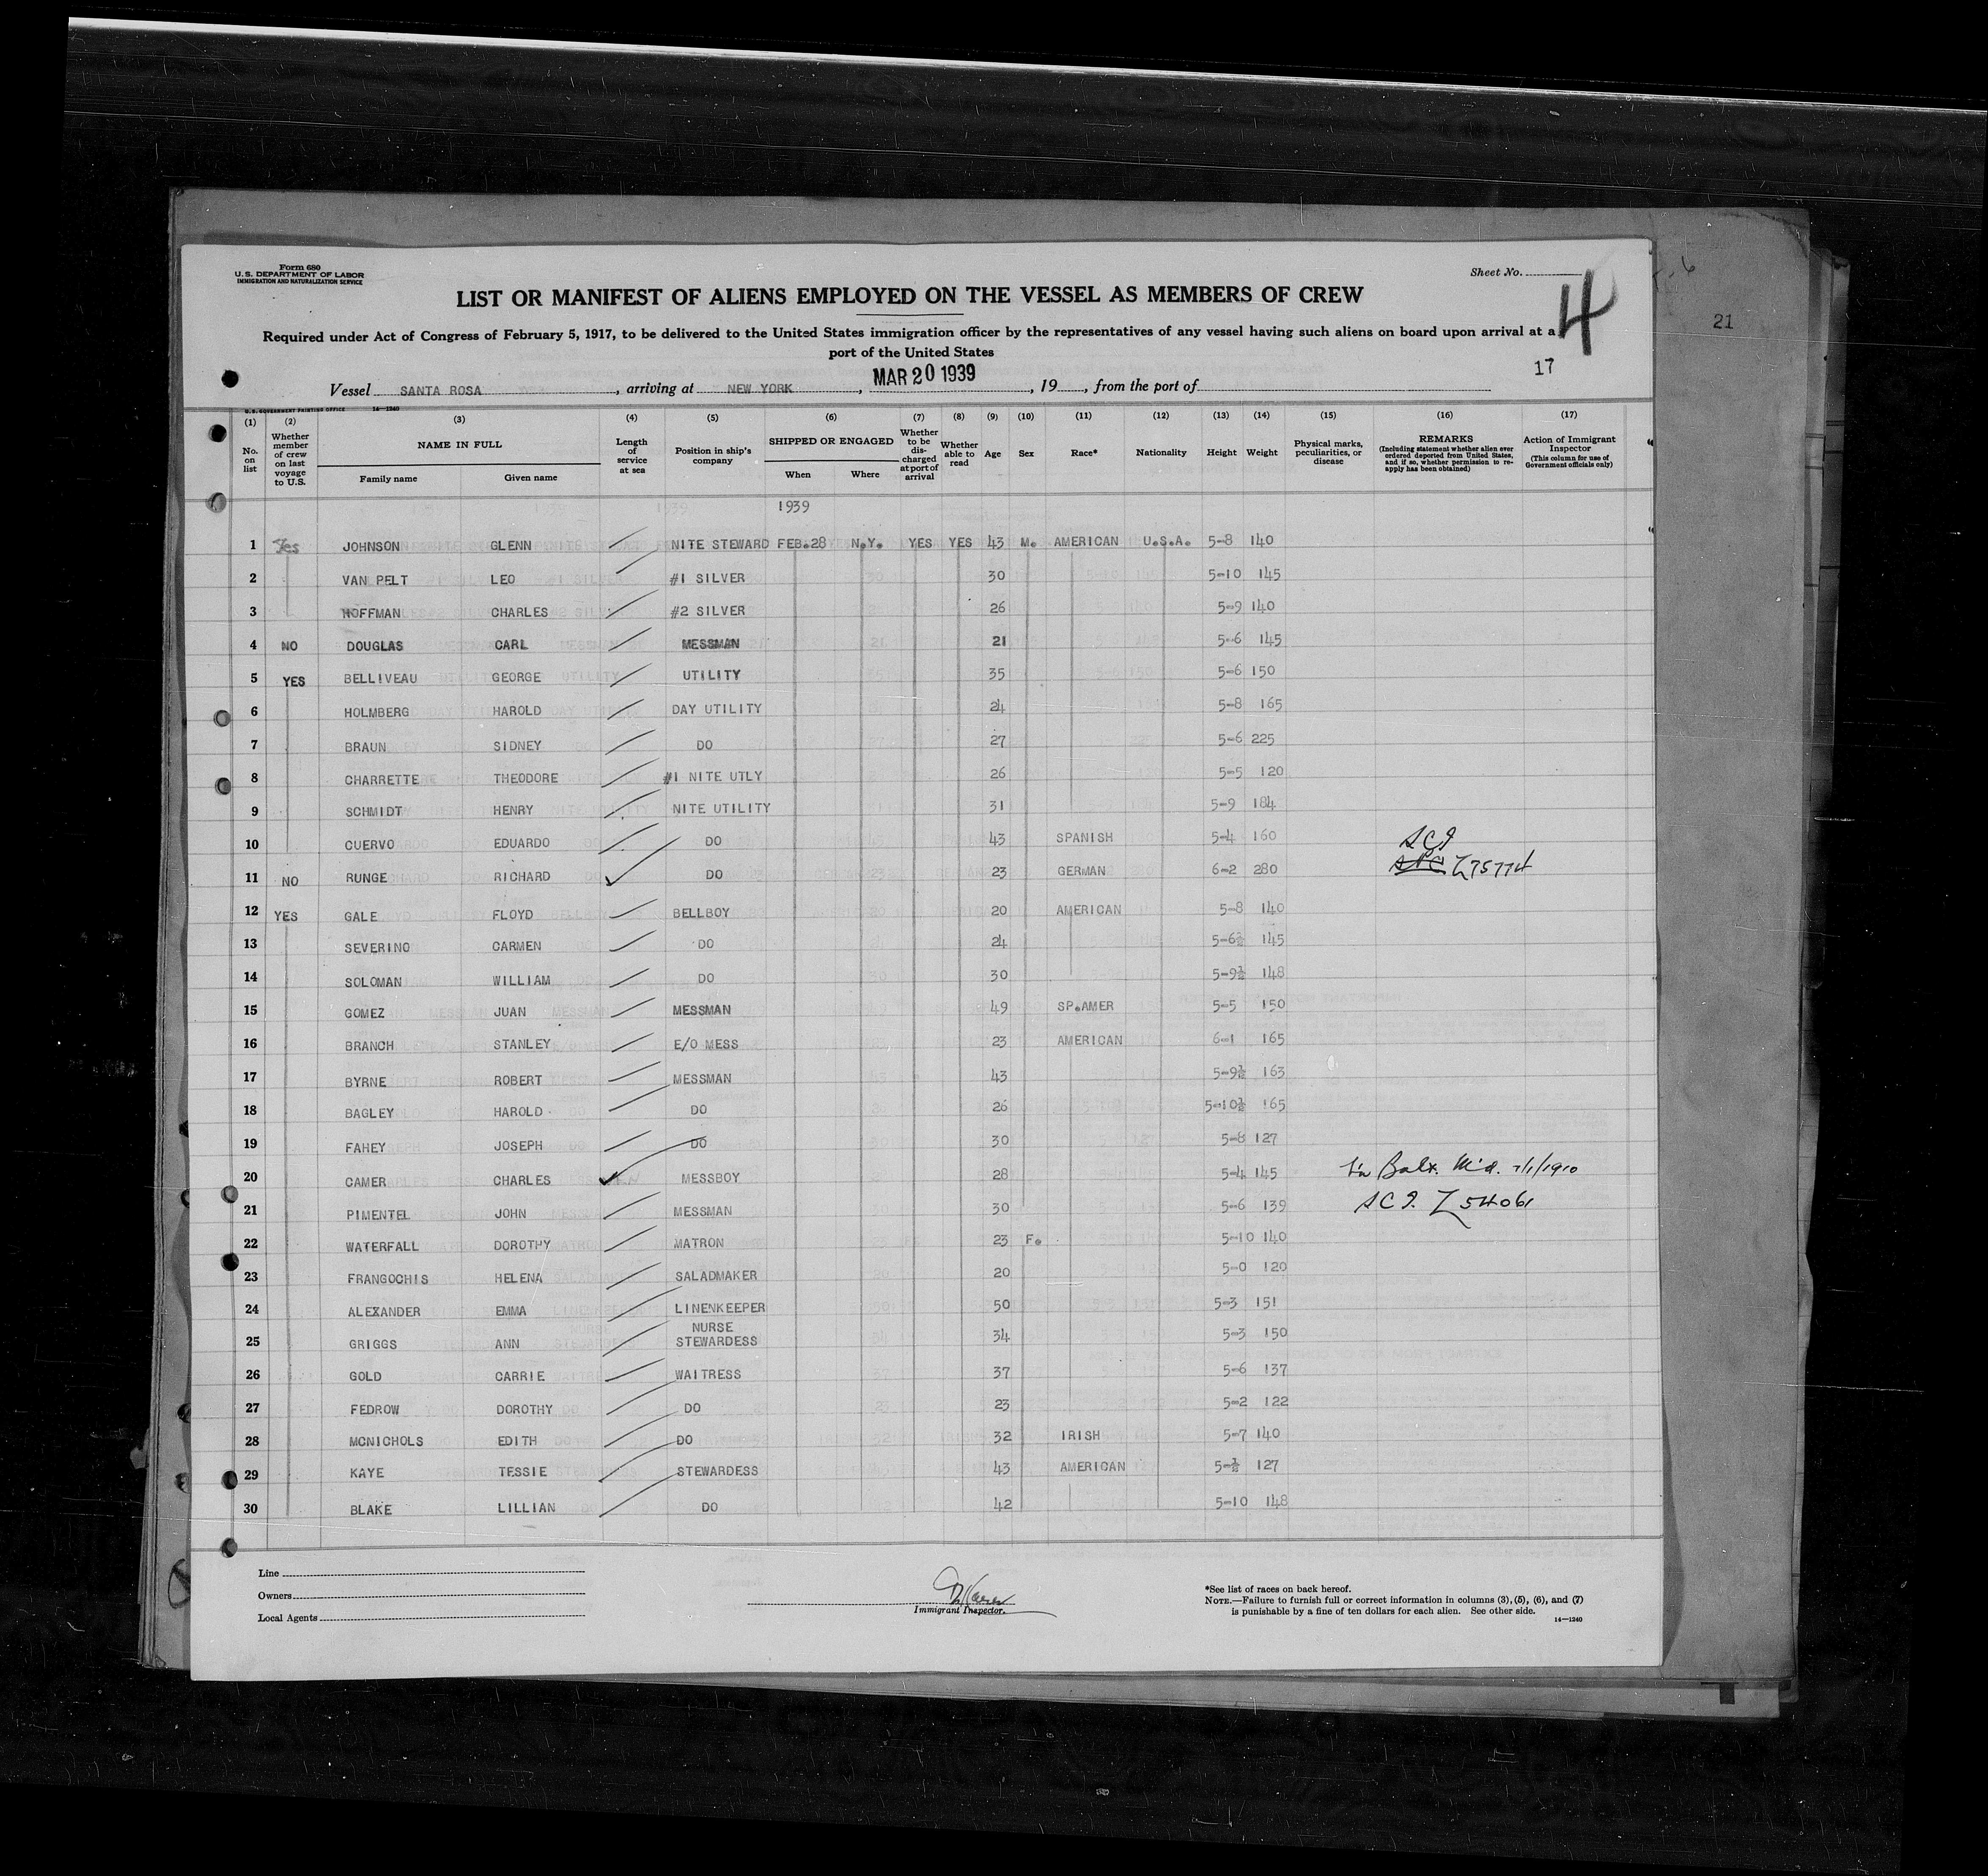 Form 680
U.S. DEPARTMENT OF LABOR
IMMIGRATION AND NATURALIZATION SERVICE
Sheet No.
4
LIST OR MANIFEST OF ALIENS EMPLOYED ON THE VESSEL AS MEMBERS OF CREW
Required under Act of Congress of February 5, 1917, to be delivered to the United States immigration officer by the representatives of any vessel having such aliens on board upon arrival at a
port of the United States
21
17
Vessel SANTA ROSA, arriving at NEW YORK, MAR 20 1939, 19, from the port of
U.S. GOVERNMENT PRINTING OFFICE 14—1240
(1) (2) (3) (4) (5) (6) (7) (8) (9) (10) (11) (12) (13) (14) (15) (16) (17)
No. on list
Whether member of crew on last voyage to U.S.
NAME IN FULL
Family name Given name
Length of service at sea
Position in ship's company
SHIPPED OR ENGAGED
When Where
Whether to be discharged at port of arrival
Whether able to read
Age Sex Race* Nationality Height Weight
Physical marks, peculiarities, or disease
REMARKS
(Including statement whether alien ever ordered deported from United States, and if so, whether permission to reapply has been obtained)
Action of Immigrant Inspector
(This column for use of Government officials only)
1939
1 Yes JOHNSON GLENN NITE STEWARD FEB.28 N.Y. YES YES 43 M. AMERICAN U.S.A. 5-8 140
2 VAN PELT LEO #1 SILVER 30 5-10 145
3 HOFFMAN CHARLES #2 SILVER 26 5-9 140
4 NO DOUGLAS CARL MESSMAN 21 5-6 145
5 YES BELLIVEAU GEORGE UTILITY 35 5-6 150
6 HOLMBERG HAROLD DAY UTILITY 24 5-8 165
7 BRAUN SIDNEY DO 27 5-6 225
8 CHARRETTE THEODORE #1 NITE UTLY 26 5-5 120
9 SCHMIDT HENRY NITE UTILITY 31 5-9 184
10 CUERVO EDUARDO DO 43 SPANISH 5-4 160 SCI
11 NO RUNGE RICHARD DO 23 GERMAN 6-2 280 Z75774
12 YES GALE FLOYD BELLBOY 20 AMERICAN 5-8 140
13 SEVERINO CARMEN DO 24 5-6½ 145
14 SOLOMAN WILLIAM DO 30 5-9½ 148
15 GOMEZ JUAN MESSMAN 49 SP.AMER 5-5 150
16 BRANCH STANLEY E/O MESS 23 AMERICAN 6-1 165
17 BYRNE ROBERT MESSMAN 43 5-9½ 163
18 BAGLEY HAROLD DO 26 5-10½ 165
19 FAHEY JOSEPH DO 30 5-8 127
20 CAMER CHARLES MESSBOY 28 5-4 145 in Balt. Md. 7/1/1910
21 PIMENTEL JOHN MESSMAN 30 5-6 139 SCI. Z54061
22 WATERFALL DOROTHY MATRON 23 F. 5-10 140
23 FRANGOCHIS HELENA SALADMAKER 20 5-0 120
24 ALEXANDER EMMA LINENKEEPER 50 5-3 151
25 GRIGGS ANN NURSE STEWARDESS 34 5-3 150
26 GOLD CARRIE WAITRESS 37 5-6 137
27 FEDROW DOROTHY DO 23 5-2 122
28 MCNICHOLS EDITH DO 32 IRISH 5-7 140
29 KAYE TESSIE STEWARDESS 43 AMERICAN 5-½ 127
30 BLAKE LILLIAN DO 42 5-10 148
Line
Owners
Local Agents
Immigrant Inspector.
*See list of races on back hereof.
NOTE.—Failure to furnish full or correct information in columns (3), (5), (6), and (7)
is punishable by a fine of ten dollars for each alien. See other side.
14—1240